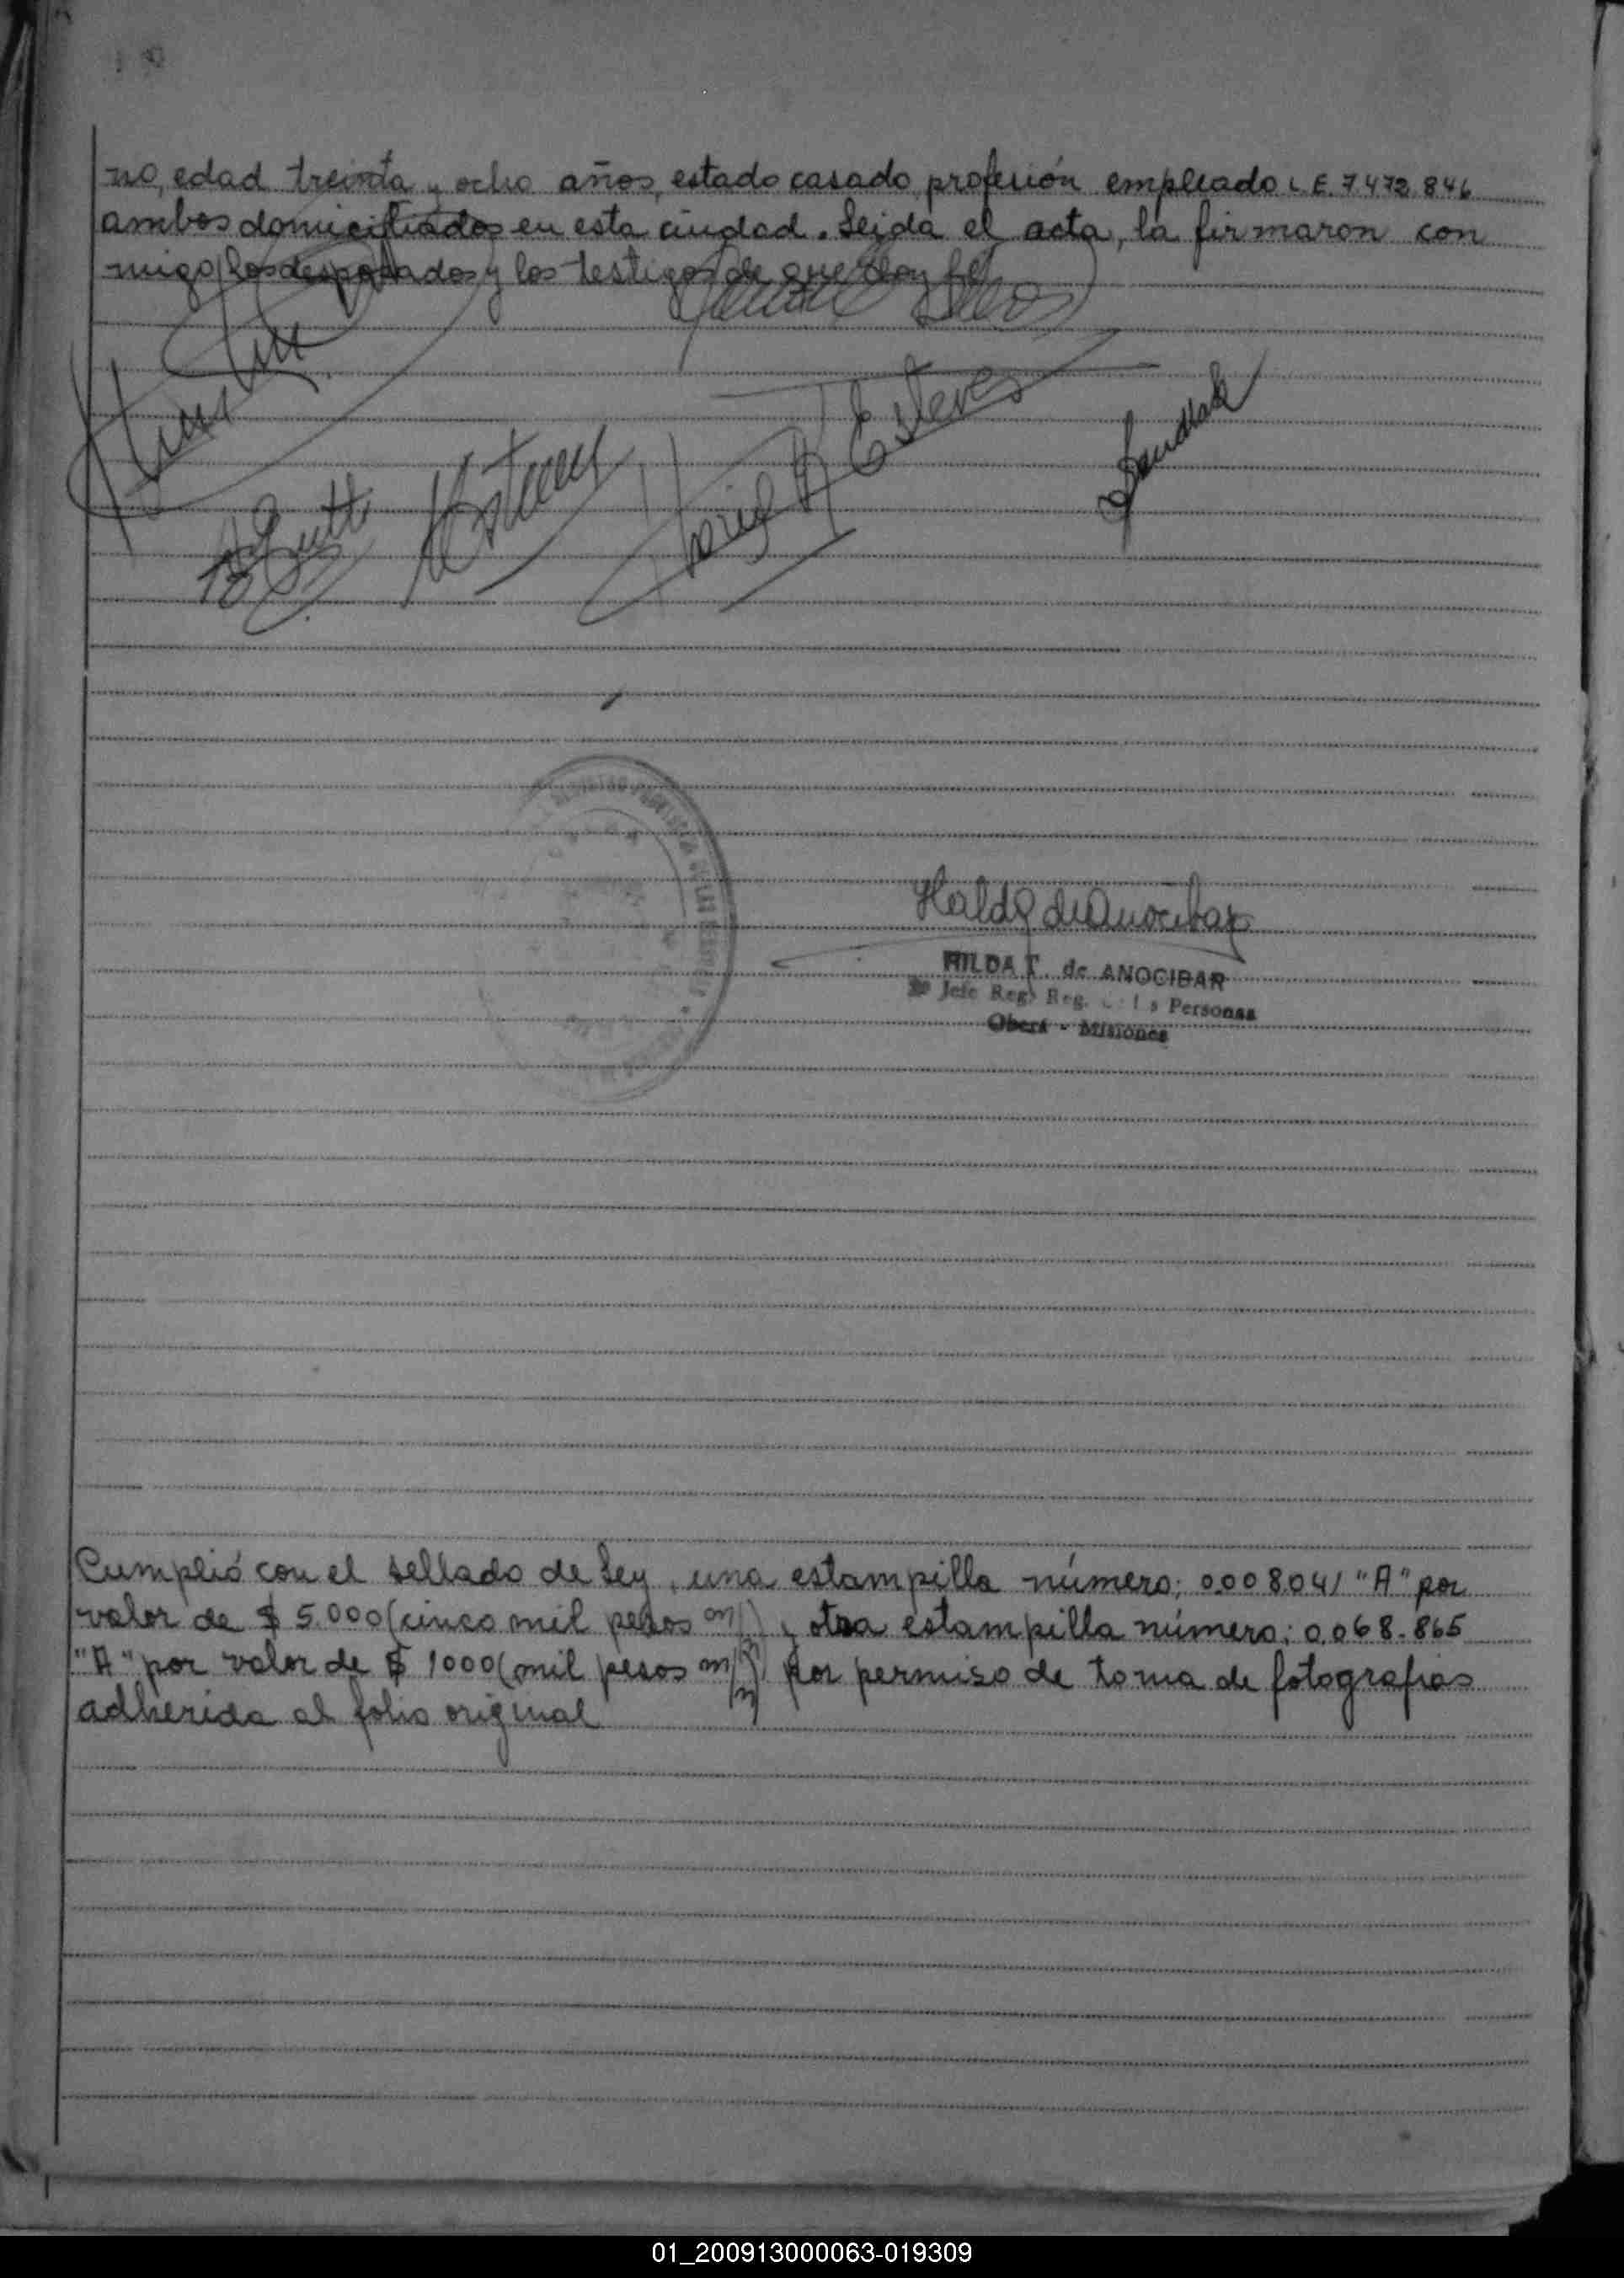 no, edad treinta y ocho años, estado casado, profesión empleado L.E. 7.472.846
ambos domiciliados en esta ciudad. Leida el acta, la firmaron con
migo los desposados y los testigos de que doy fé
Esteves
HILDA T. de ANOCIBAR
Jefe Reg. Reg. Personas
Oberá - Misiones
Cumplió con el sellado de Ley, una estampilla número: 0.008.041 "A" por
valor de $ 5.000 (cinco mil pesos m/n) y otra estampilla número: 0.068.865
"A" por valor de $ 1000 (mil pesos m/n) por permiso de toma de fotografias
adherida al folio original
01_200913000063-019309